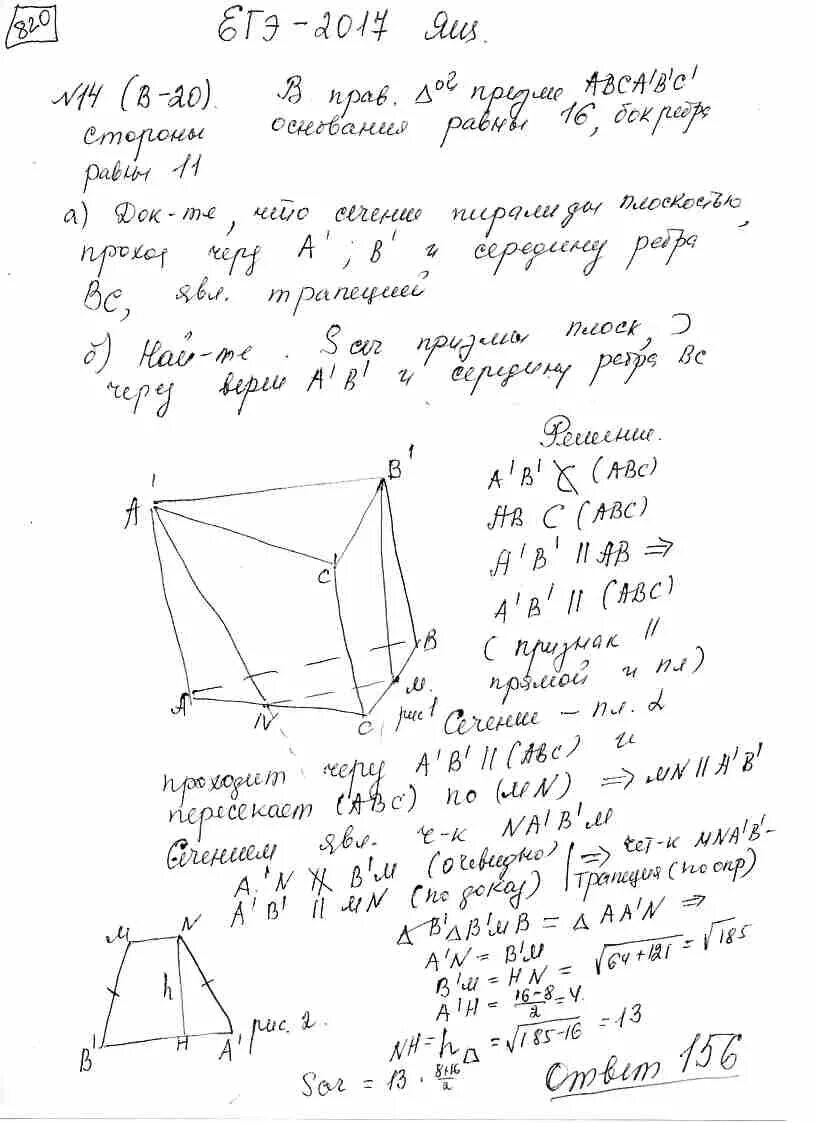 820
ЕГЭ – 2017 Ящ.
№14 (В-20). В прав. Δой призме ABCA'B'C'
стороны основания равны 16, бок ребра
равны 11
а) Док-те, что сечение пирамиды плоскостью,
проход через A'; B' и середину ребра
BC, явл. трапецией
б) Най-те. S сеч призмы плоск,
через верш A'B' и середину ребра BC
Решение.
A'B' ⊄ (ABC)
AB ⊂ (ABC)
A'B' || AB ⇒
A'B' || (ABC)
( признак ||
прямой и пл)
A'
B'
C'
A
B
C
N
M.
рис 1
Сечение – пл. α
проходит через A'B' || (ABC) и
пересекает (ABC) по (MN) ⇒ MN || A'B'
Сечением явл. ч-к NA'B'M
A'N ∦ B'M (очевидно)
A'B' || MN (по доказ)
⇒ чет-к MNA'B'-
трапеция (по опр)
Δ B'MB = Δ AA'N ⇒
A'N = B'M
B'M = HN = √64+121 = √185
A'H = 16-8/2 = 4.
NH = h = √185-16 = 13
Sсеч = 13 · 8+16/2
Ответ 156
M
N
h
B'
H
A'
рис. 2.